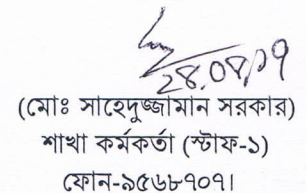 28.04.09
(মোঃ সাহেদুজ্জামান সরকার)
শাখা কর্মকর্তা (স্টাফ-১)
ফোন-৯৫৬৮৭০৭।